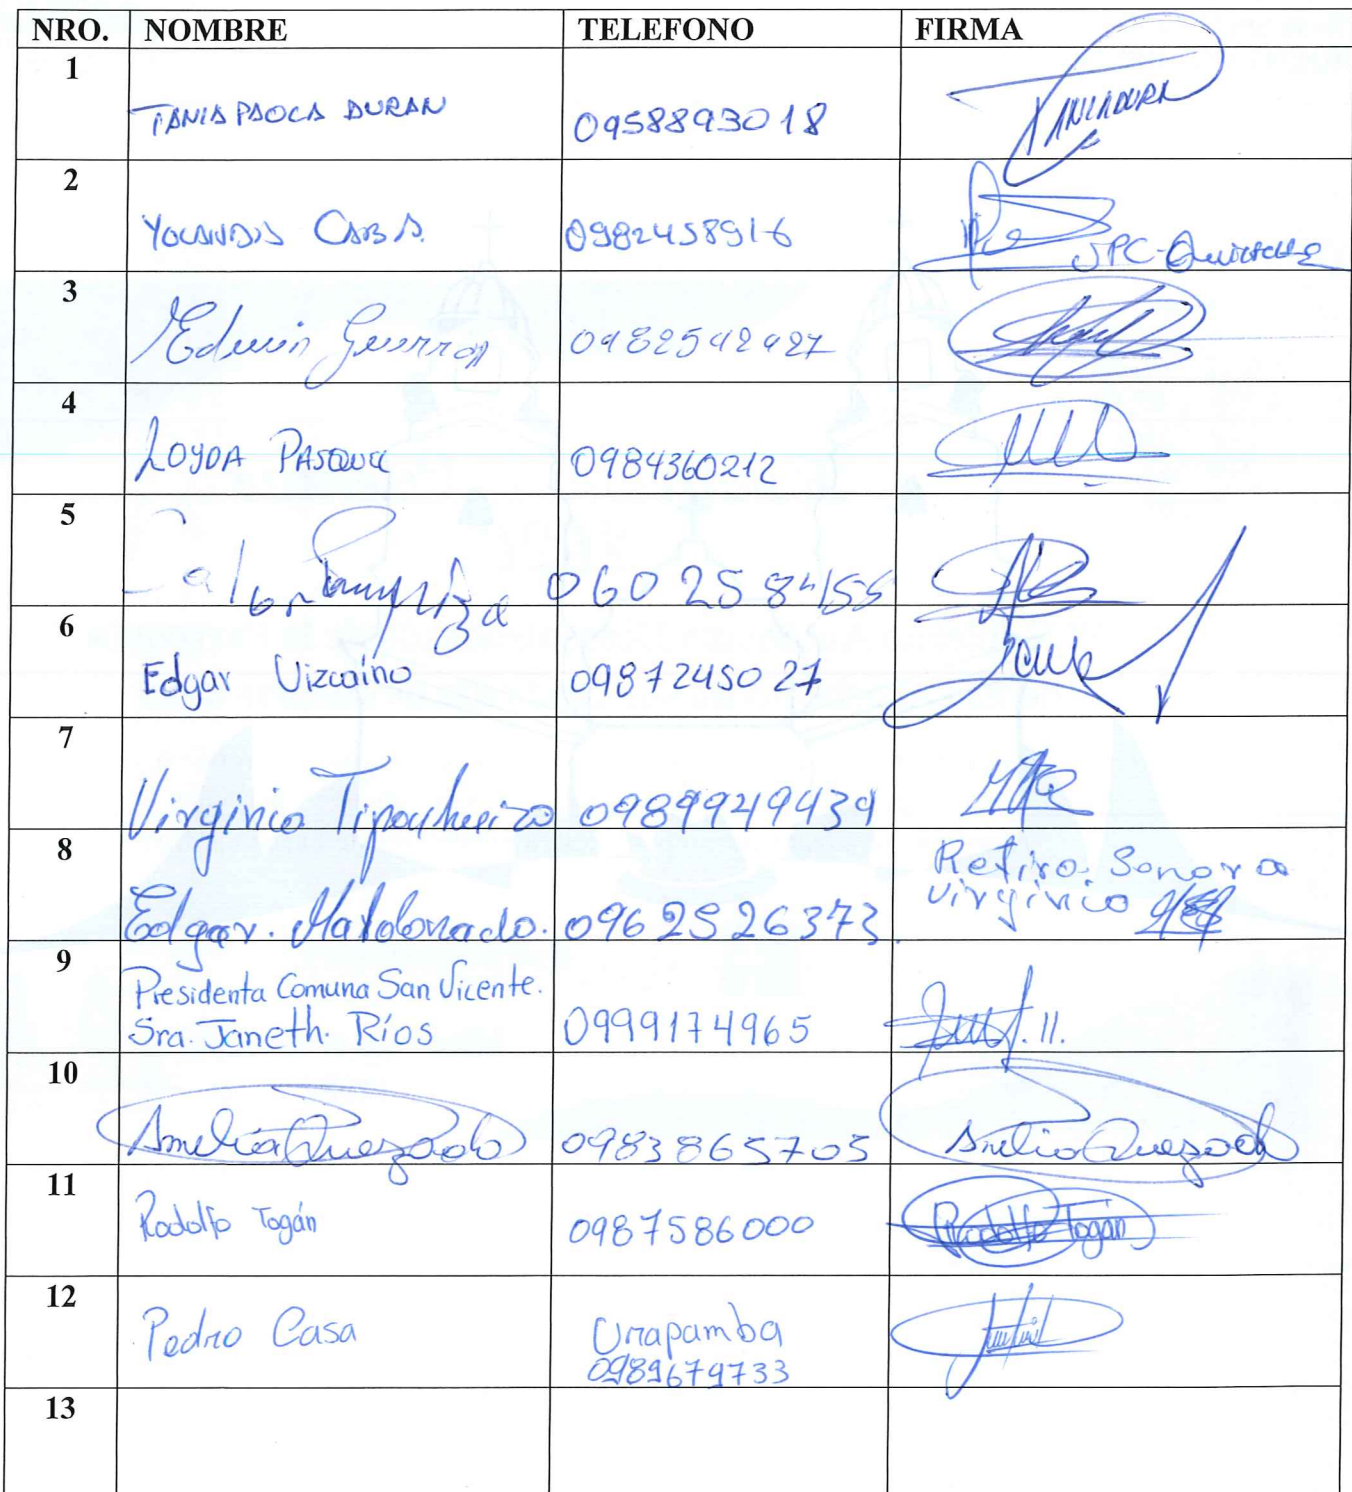 NRO. NOMBRE TELEFONO FIRMA
1 TANIA PAOLA DURAN 0958893018 TANIADURA
2 YOLANDA CABA. 0982458916 JPC-Quinche
3 Edwin Guerra 0982592927
4 LOYDA PASQUEL 0984360212
5 060 25 84155
6 Edgar Vizcaíno 0987245027
7 Virginio 0989949439
8 Edgar. Maldonado. 0962526373 Retiro. Sonora
virginio
9 Presidenta Comuna San Vicente.
Sra. Janeth. Ríos 0999174965
10 Amelia Quezada 0983865705 Amelia Quezada
11 Rodolfo Togán 0987586000 Rodolfo Togán
12 Pedro Casa Urapamba
0989679733
13